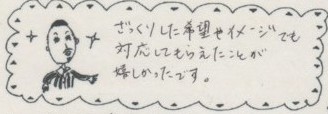 ざっくりした希望やイメージでも
対応してもらえたことが
嬉しかったです。